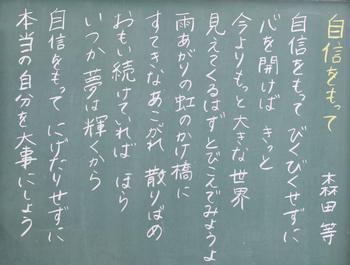 自信をもって
森田 等
自信をもって びくびくせずに
心を開けば きっと
今よりもっと大きな世界
見えてくるはず とびこんでみようよ
雨あがりの虹のかけ橋に
すてきなあこがれ 散りばめ
おもい続けていれば ほら
いつか夢は輝くから
自信をもって にげたりせずに
本当の自分を大事にしよう